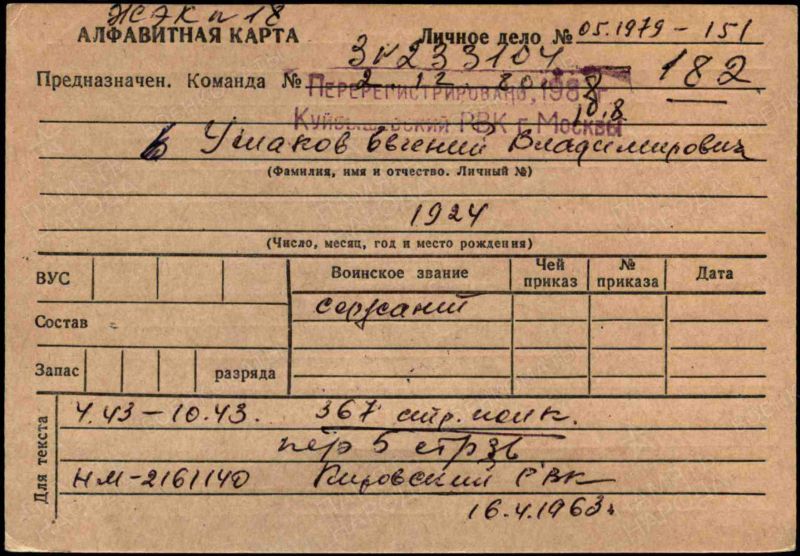 ЖЭК № 18
АЛФАВИТНАЯ КАРТА Личное дело № 05.1979-151
3 № 233104
Предназначен. Команда № 2.12.80 182
ПЕРЕРЕГИСТРИРОВАНО, 198 г
10.8
КУЙБЫШЕВСКИЙ РВК г. МОСКВЫ
Ушаков Евгений Владимирович
(Фамилия, имя и отчество. Личный №)
1924
(Число, месяц, год и место рождения)
ВУС Воинское звание Чей приказ № приказа Дата
сержант
Состав
Запас разряда
Для текста
4.43-10.43. 367 стр. полк.
5 стр
НМ-2161140 Кировский РВК
16.4.1963г.